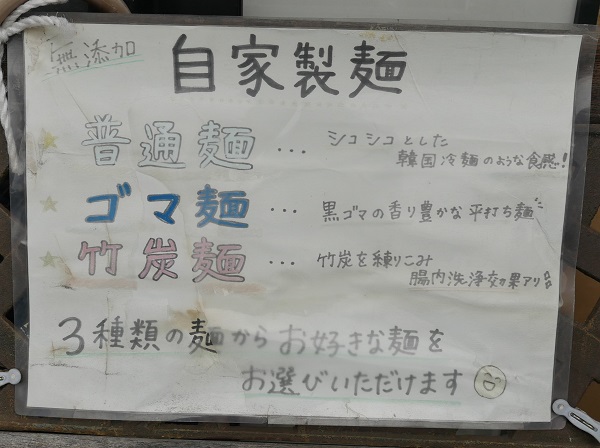 無添加
自家製麺
普通麺 … シコシコとした
韓国冷麺のような食感!
ゴマ麺 … 黒ゴマの香り豊かな平打ち麺
竹炭麺 … 竹炭を練りこみ
腸内洗浄効果アリ
3種類の麺からお好きな麺を
お選びいただけます